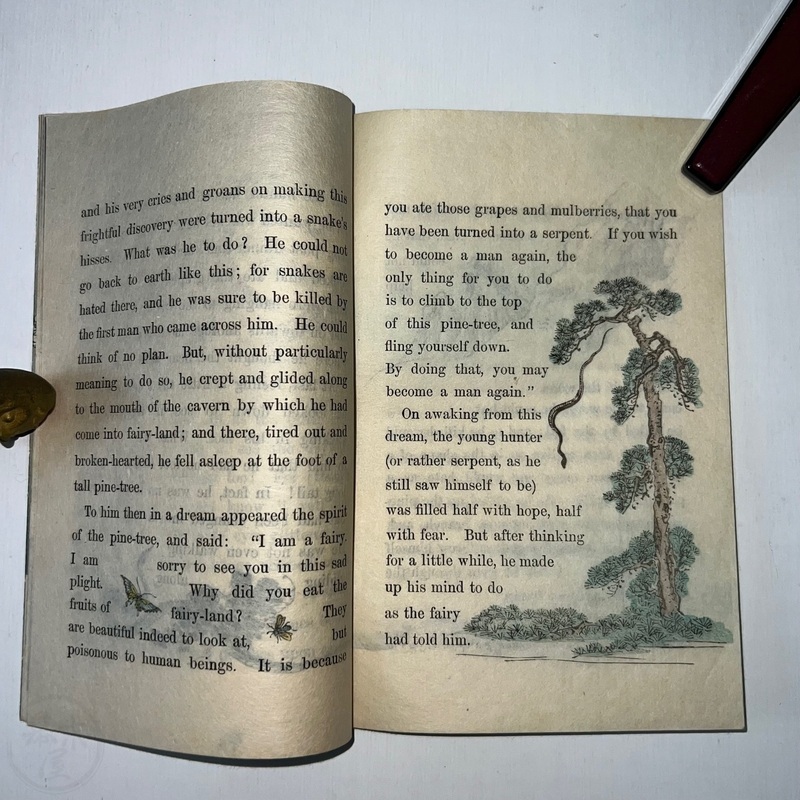 and his very cries and groans on making this
frightful discovery were turned into a snake's
hisses. What was he to do? He could not
go back to earth like this; for snakes are
hated there, and he was sure to be killed by
the first man who came across him. He could
think of no plan. But, without particularly
meaning to do so, he crept and glided along
to the mouth of the cavern by which he had
come into fairy-land; and there, tired out and
broken-hearted, he fell asleep at the foot of a
tall pine-tree.
To him then in a dream appeared the spirit
of the pine-tree, and said: "I am a fairy.
I am sorry to see you in this sad
plight. Why did you eat the
fruits of fairy-land? They
are beautiful indeed to look at, but
poisonous to human beings. It is because
you ate those grapes and mulberries, that you
have been turned into a serpent. If you wish
to become a man again, the
only thing for you to do
is to climb to the top
of this pine-tree, and
fling yourself down.
By doing that, you may
become a man again."
On awaking from this
dream, the young hunter
(or rather serpent, as he
still saw himself to be)
was filled half with hope, half
with fear. But after thinking
for a little while, he made
up his mind to do
as the fairy
had told him.